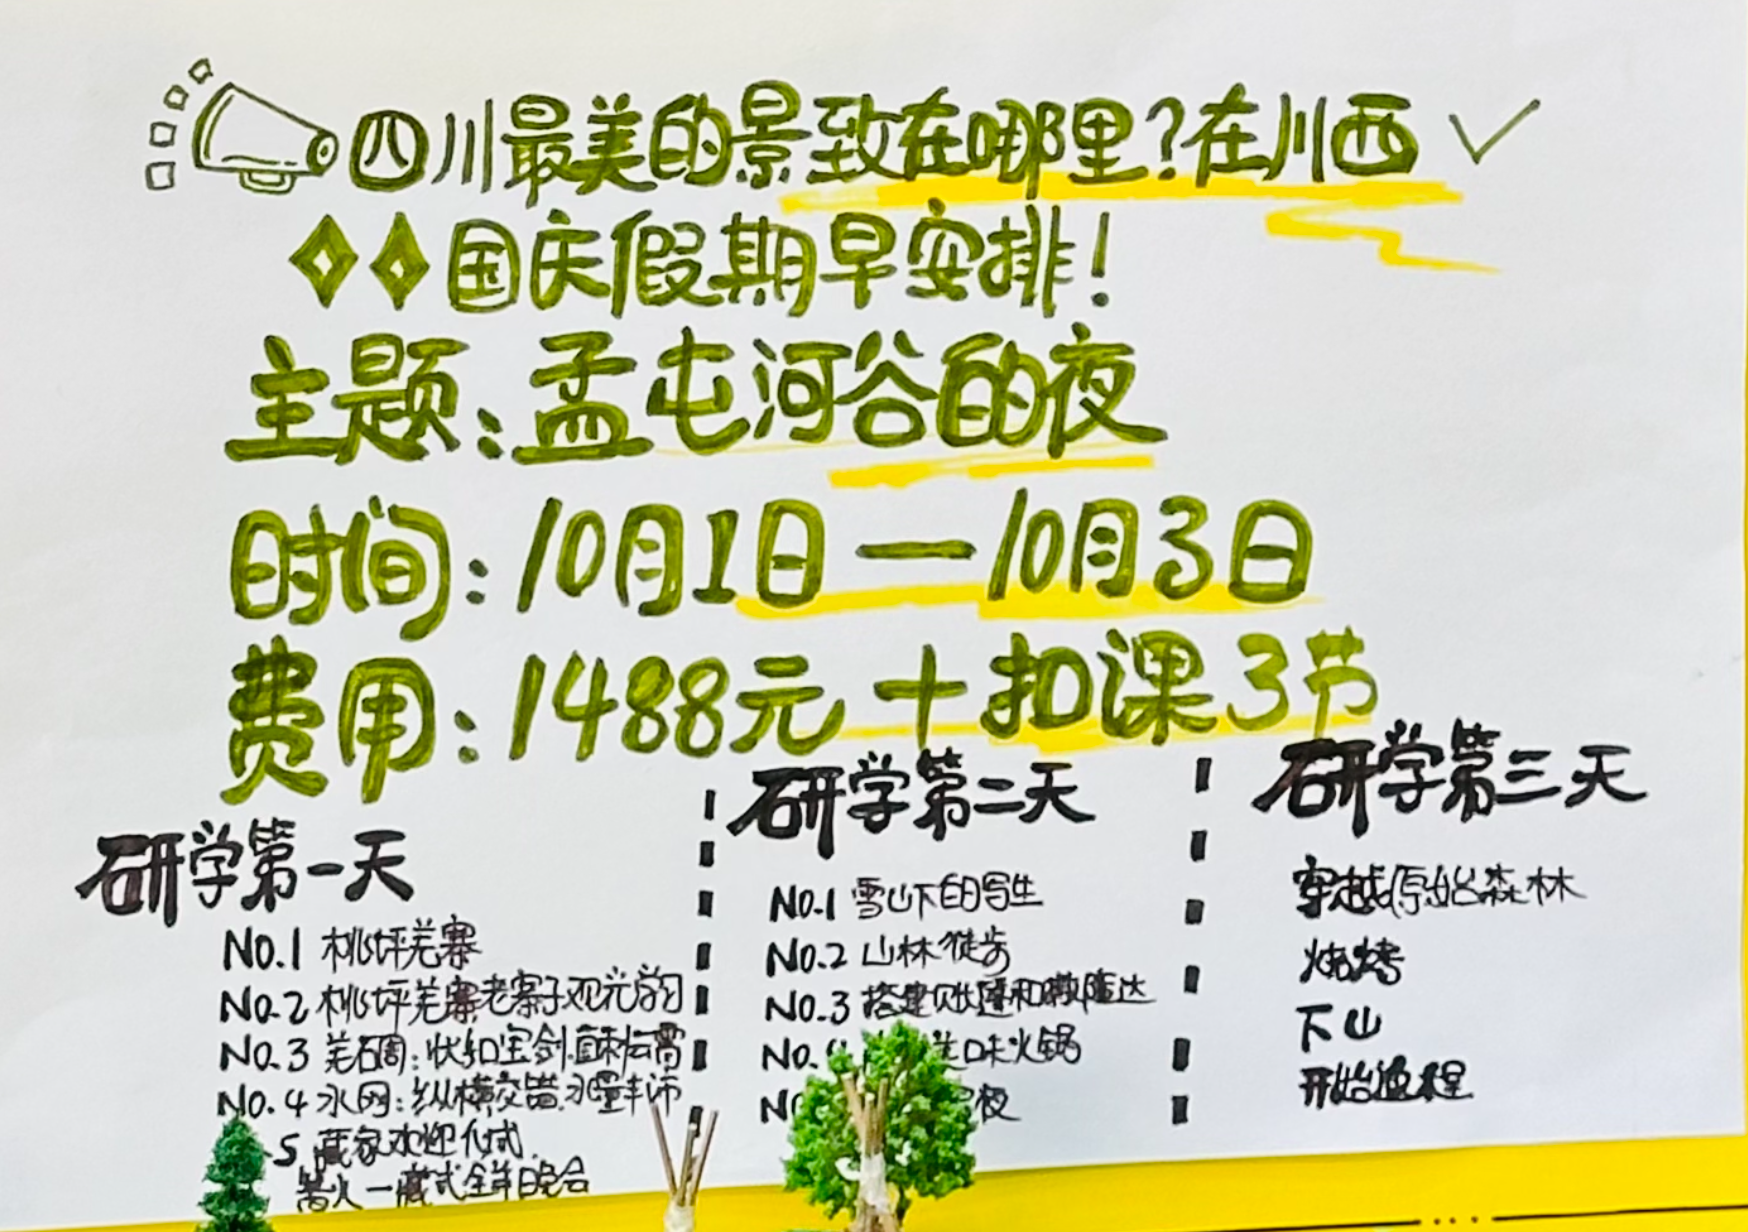 四川最美的景致在哪里?在川西
国庆假期早安排!
主题:孟屯河谷的夜
时间:10月1日—10月3日
费用:1488元+扣课3节
研学第一天
NO.1 桃坪羌寨
NO.2 桃坪羌寨老寨子观光学习
NO.3 羌碉:状如宝剑.直刺云霄
NO.4 水网:纵横交错.水量丰沛
5 藏家欢迎仪式.
篝火一藏式全羊晚会
研学第二天
NO.1 雪山下的写生
NO.2 山林徒步
NO.3 搭建帐篷和
NO. 味火锅
N 夜
研学第三天
穿越原始森林
烧烤
下山
开始返程